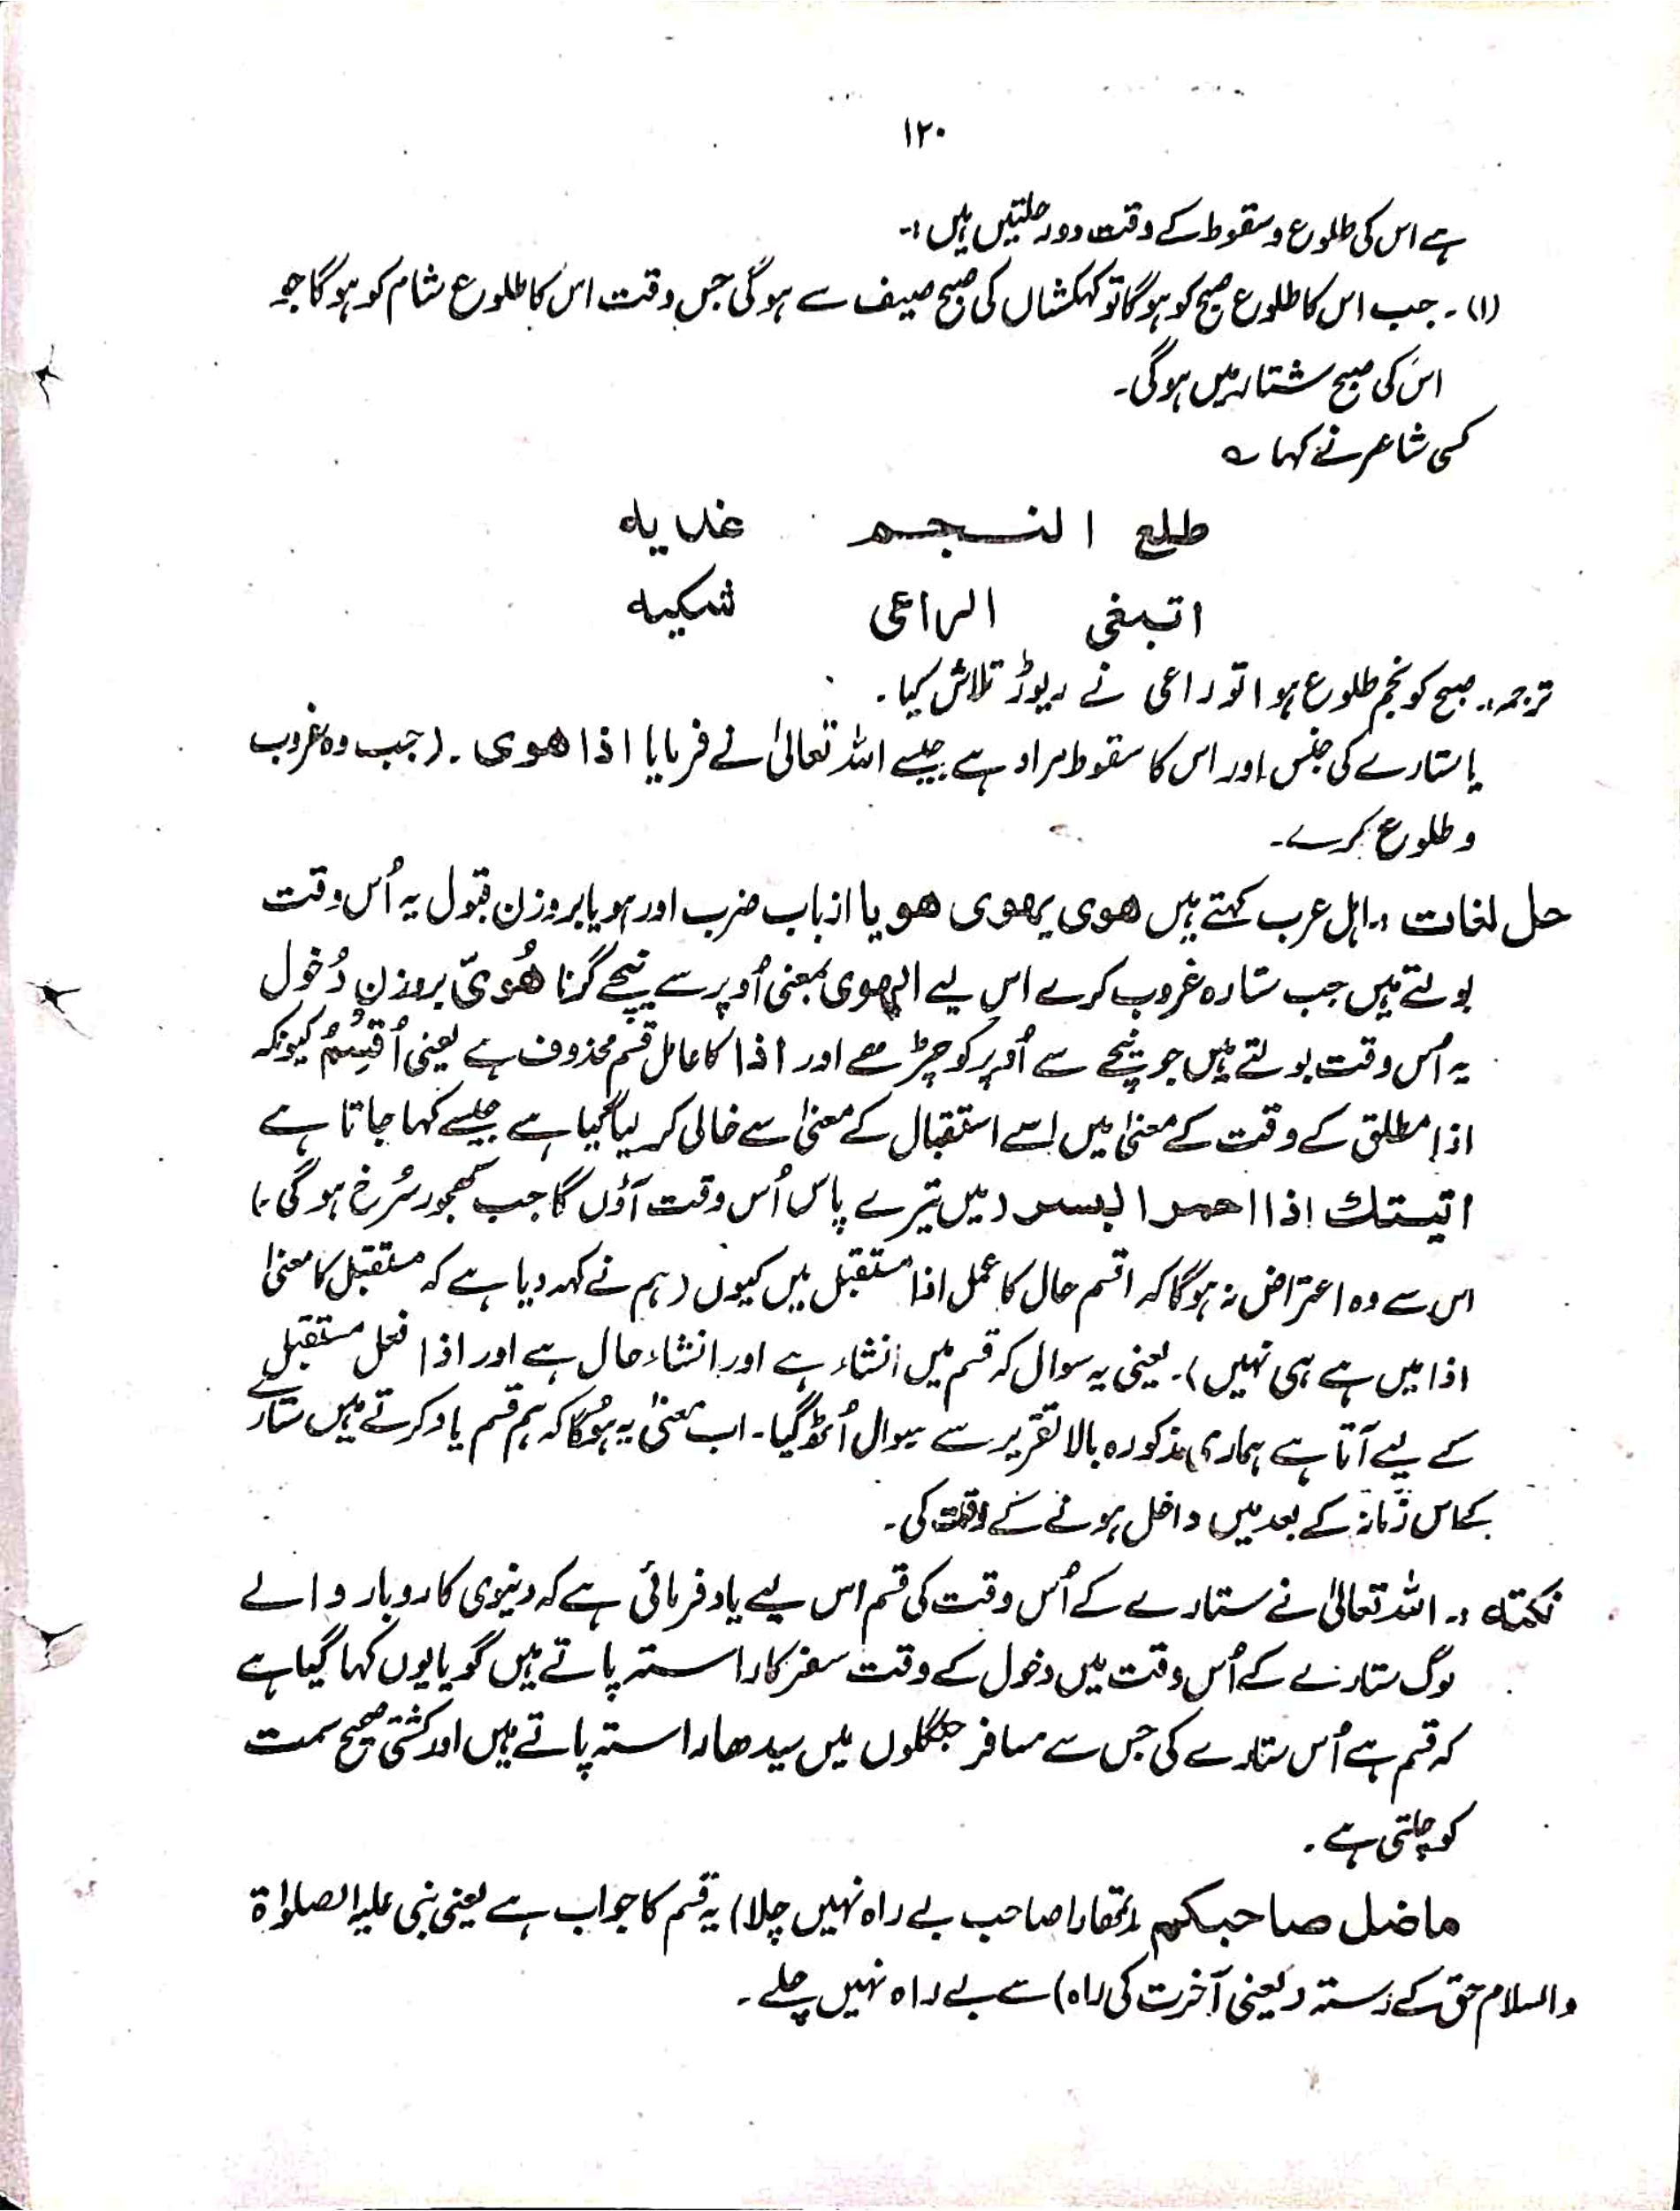 ۱۲۰
ہے اس کی طلوع و سقوط کے وقت دو رحلتیں ہیں :۔
(۱) ۔ جب اس کا طلوع صبح کو ہوگا تو کہکشاں کی صبح صیف سے ہوگی جس وقت اس کا طلوع شام کو ہوگا جو
اس کی صبح شتاء میں ہوگی۔
کسی شاعر نے کہا ؎
طلع النجم غدیه
اتبغی الراعی شکیه
ترجمہ :۔ صبح کو نجم طلوع ہوا تو راعی نے ریوڑ تلاش کیا ۔
یا ستارے کی جنس اور اس کا سقوط مراد ہے جیسے اللہ تعالیٰ نے فرمایا اذا هوی ۔ (جب وہ غروب
و طلوع کرے۔
حل لغات :۔ اہل عرب کہتے ہیں هوی یهوی هویا از باب ضرب اور ہویا بروزن قبول یہ اُس وقت
بولتے ہیں جب ستارہ غروب کرے اس لیے الہوی بمعنی اُوپر سے نیچے گرنا هُویّ بروزن دُخول
یہ اُس وقت بولتے ہیں جو نیچے سے اُوپر کو چڑھے اور اذا کا عامل قسم محذوف ہے یعنی اُقسِمُ کیونکہ
اذا مطلق کے وقت کے معنیٰ میں اسے استقبال کے معنیٰ سے خالی کر لیا گیا ہے جیسے کہا جاتا ہے
اتیتك اذا احمر البسر (میں تیرے پاس اُس وقت آؤں گا جب کھجور سُرخ ہو گی)
اس سے وہ اعتراض نہ ہوگا کہ اقسم حال کا عمل اذا مستقبل میں کیوں (ہم نے کہہ دیا ہے کہ مستقبل کا معنیٰ
اذا میں ہے ہی نہیں) ۔ یعنی یہ سوال کہ قسم میں انشاء ہے اور انشاء حال ہے اور اذا فعل مستقبل
کے لیے آتا ہے ہماری مذکورہ بالا تقریر سے سوال اُٹھ گیا ۔ اب معنیٰ یہ ہوگا کہ ہم قسم یاد کرتے ہیں ستارے
کے اس زمانہ کے بعد میں داخل ہونے کے وقت کی۔
نکتہ :۔ اللہ تعالیٰ نے ستارے کے اُس وقت کی قسم اس لیے یاد فرمائی ہے کہ دنیوی کاروبار والے
لوگ ستارے کے اُس وقت میں دخول کے وقت سفر کا راستہ پاتے ہیں گویا یوں کہا گیا ہے
کہ قسم ہے اُس ستارے کی جس سے مسافر جنگلوں میں سیدھا راستہ پاتے ہیں اور کشتی صحیح سمت
کو چلتی ہے ۔
ماضل صاحبکم (تمھارا صاحب بے راہ نہیں چلا) یہ قسم کا جواب ہے یعنی نبی علیہ الصلوٰۃ
والسلام حق کے رستہ (یعنی آخرت کی راہ) سے بے راہ نہیں چلے ۔